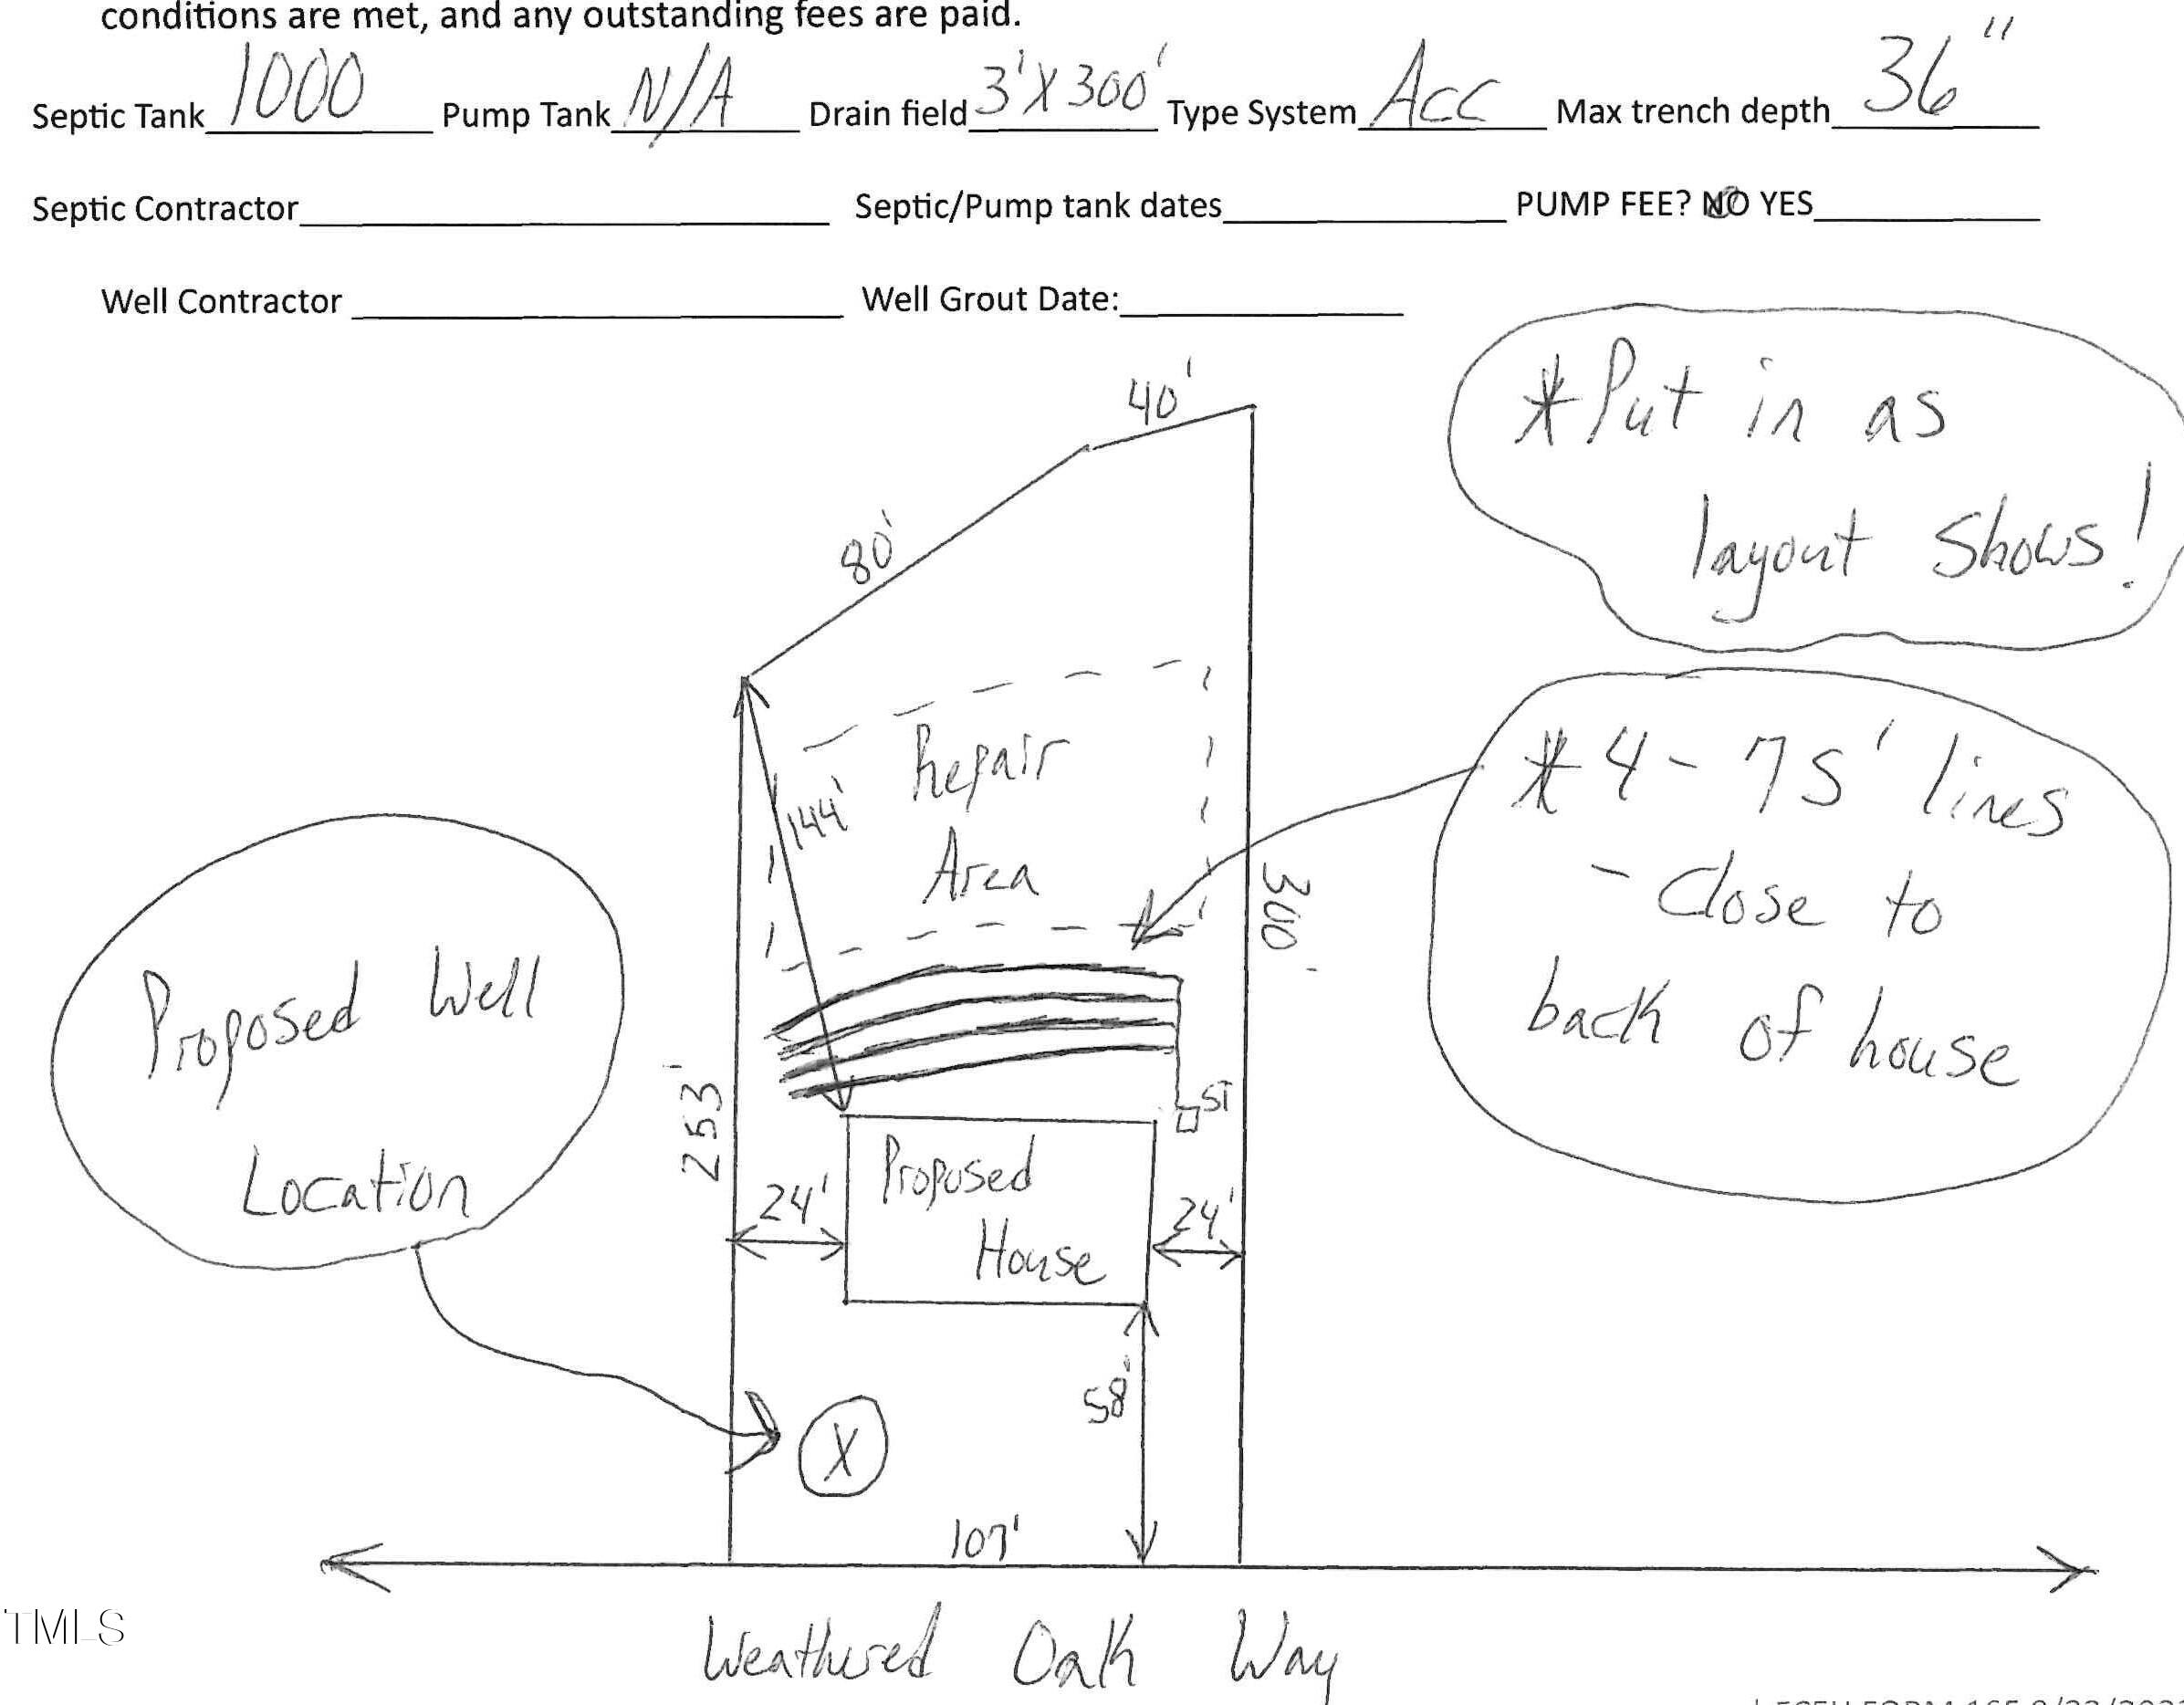 conditions are met, and any outstanding fees are paid.
Septic Tank 1000 Pump Tank N/A Drain field 3' X 300' Type System Acc Max trench depth 36"
Septic Contractor Septic/Pump tank dates PUMP FEE? NO YES
Well Contractor Well Grout Date:
*Put in as
layout shows!
40'
80'
Repair
Area
144'
300'
*4 - 75' lines
- Close to
back of house
Proposed Well
Location
253'
ST
Proposed
House
24'
24'
58'
X
107'
Weathered Oak Way
TMLS